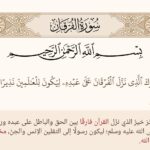 سُورَةُ الفُرْقَان
بِسْمِ اللَّهِ الرَّحْمَٰنِ الرَّحِيمِ
الَّذِي نَزَّلَ الْفُرْقَانَ عَلَىٰ عَبْدِهِ لِيَكُونَ لِلْعَالَمِينَ نَذِيرًا
خيرُ الذي نزَّل القرآن فارقًا بين الحق والباطل على عبده
الله عليه وسلم؛ ليكون رسولًا إلى الثقلين الإنس والجن،
الله.